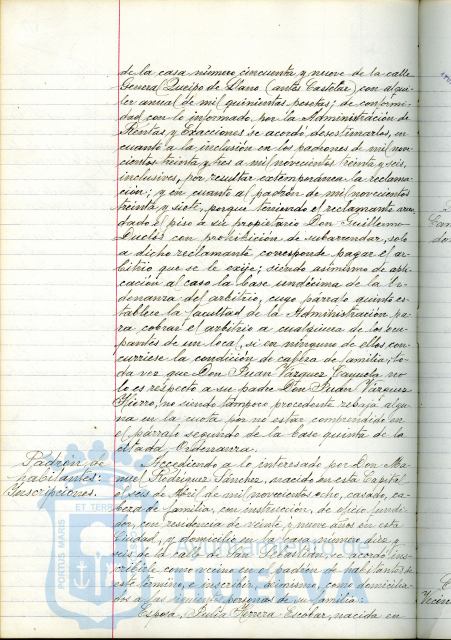 de la casa número cincuenta y nueve de la calle
General Queipo de Llano (antes Castelar) con alqui-
ler anual de mil quinientas pesetas; de conformi-
dad con lo informado por la Administración de
Rentas y Exacciones se acordó desestimarlas, en
cuanto a la inclusión en los padrones de mil nove-
cientos treinta y tres a mil novecientos treinta y seis,
inclusives, por resultar extemporánea la reclama-
ción; y en cuanto al padrón de mil novecientos
treinta y siete, porque teniendo el reclamante arren-
dado el piso a su propietario Don Guillermo
Duclós con prohibición de subarrendar, solo
a dicho reclamante corresponde pagar el ar-
bitrio que se le exije; siendo asimismo de apli-
cación al caso la base undécima de la Or-
denanza del arbitrio, cuyo párrafo quinto es-
tablece la facultad de la Administración pa-
ra cobrar el arbitrio a cualquiera de los ocu-
pantes de un local, si en ninguno de ellos con-
curriese la condición de cabeza de familia; to-
da vez que Don Juan Vázquez no
lo es respecto a su padre Don Juan Vázquez
Hierro, no siendo tampoco procedente rebaja algu-
na en la cuota por no estar comprendido en
el párrafo segundo de la base quinta de la
citada Ordenanza.
Padrón de
habitantes:
Inscripciones.
Accediendo a lo interesado por Don Ma-
nuel Rodríguez Sánchez, nacido en esta Capital
el seis de Abril de mil novecientos ocho, casado, ca-
beza de familia, con instrucción, de oficio fundi-
dor, con residencia de veinte y nueve años en esta
Ciudad, y domicilio en la casa número diez y
seis de la calle de San Sebastián, se acordó ins-
cribirle como vecino en el padrón de habitantes de
este término, e inscribir, asimismo, como domicilia-
dos a las siguientes personas de su familia:
Esposa, Julia Herrera Escobar, nacida en
PORTUS MARIS
ET TERRÆ